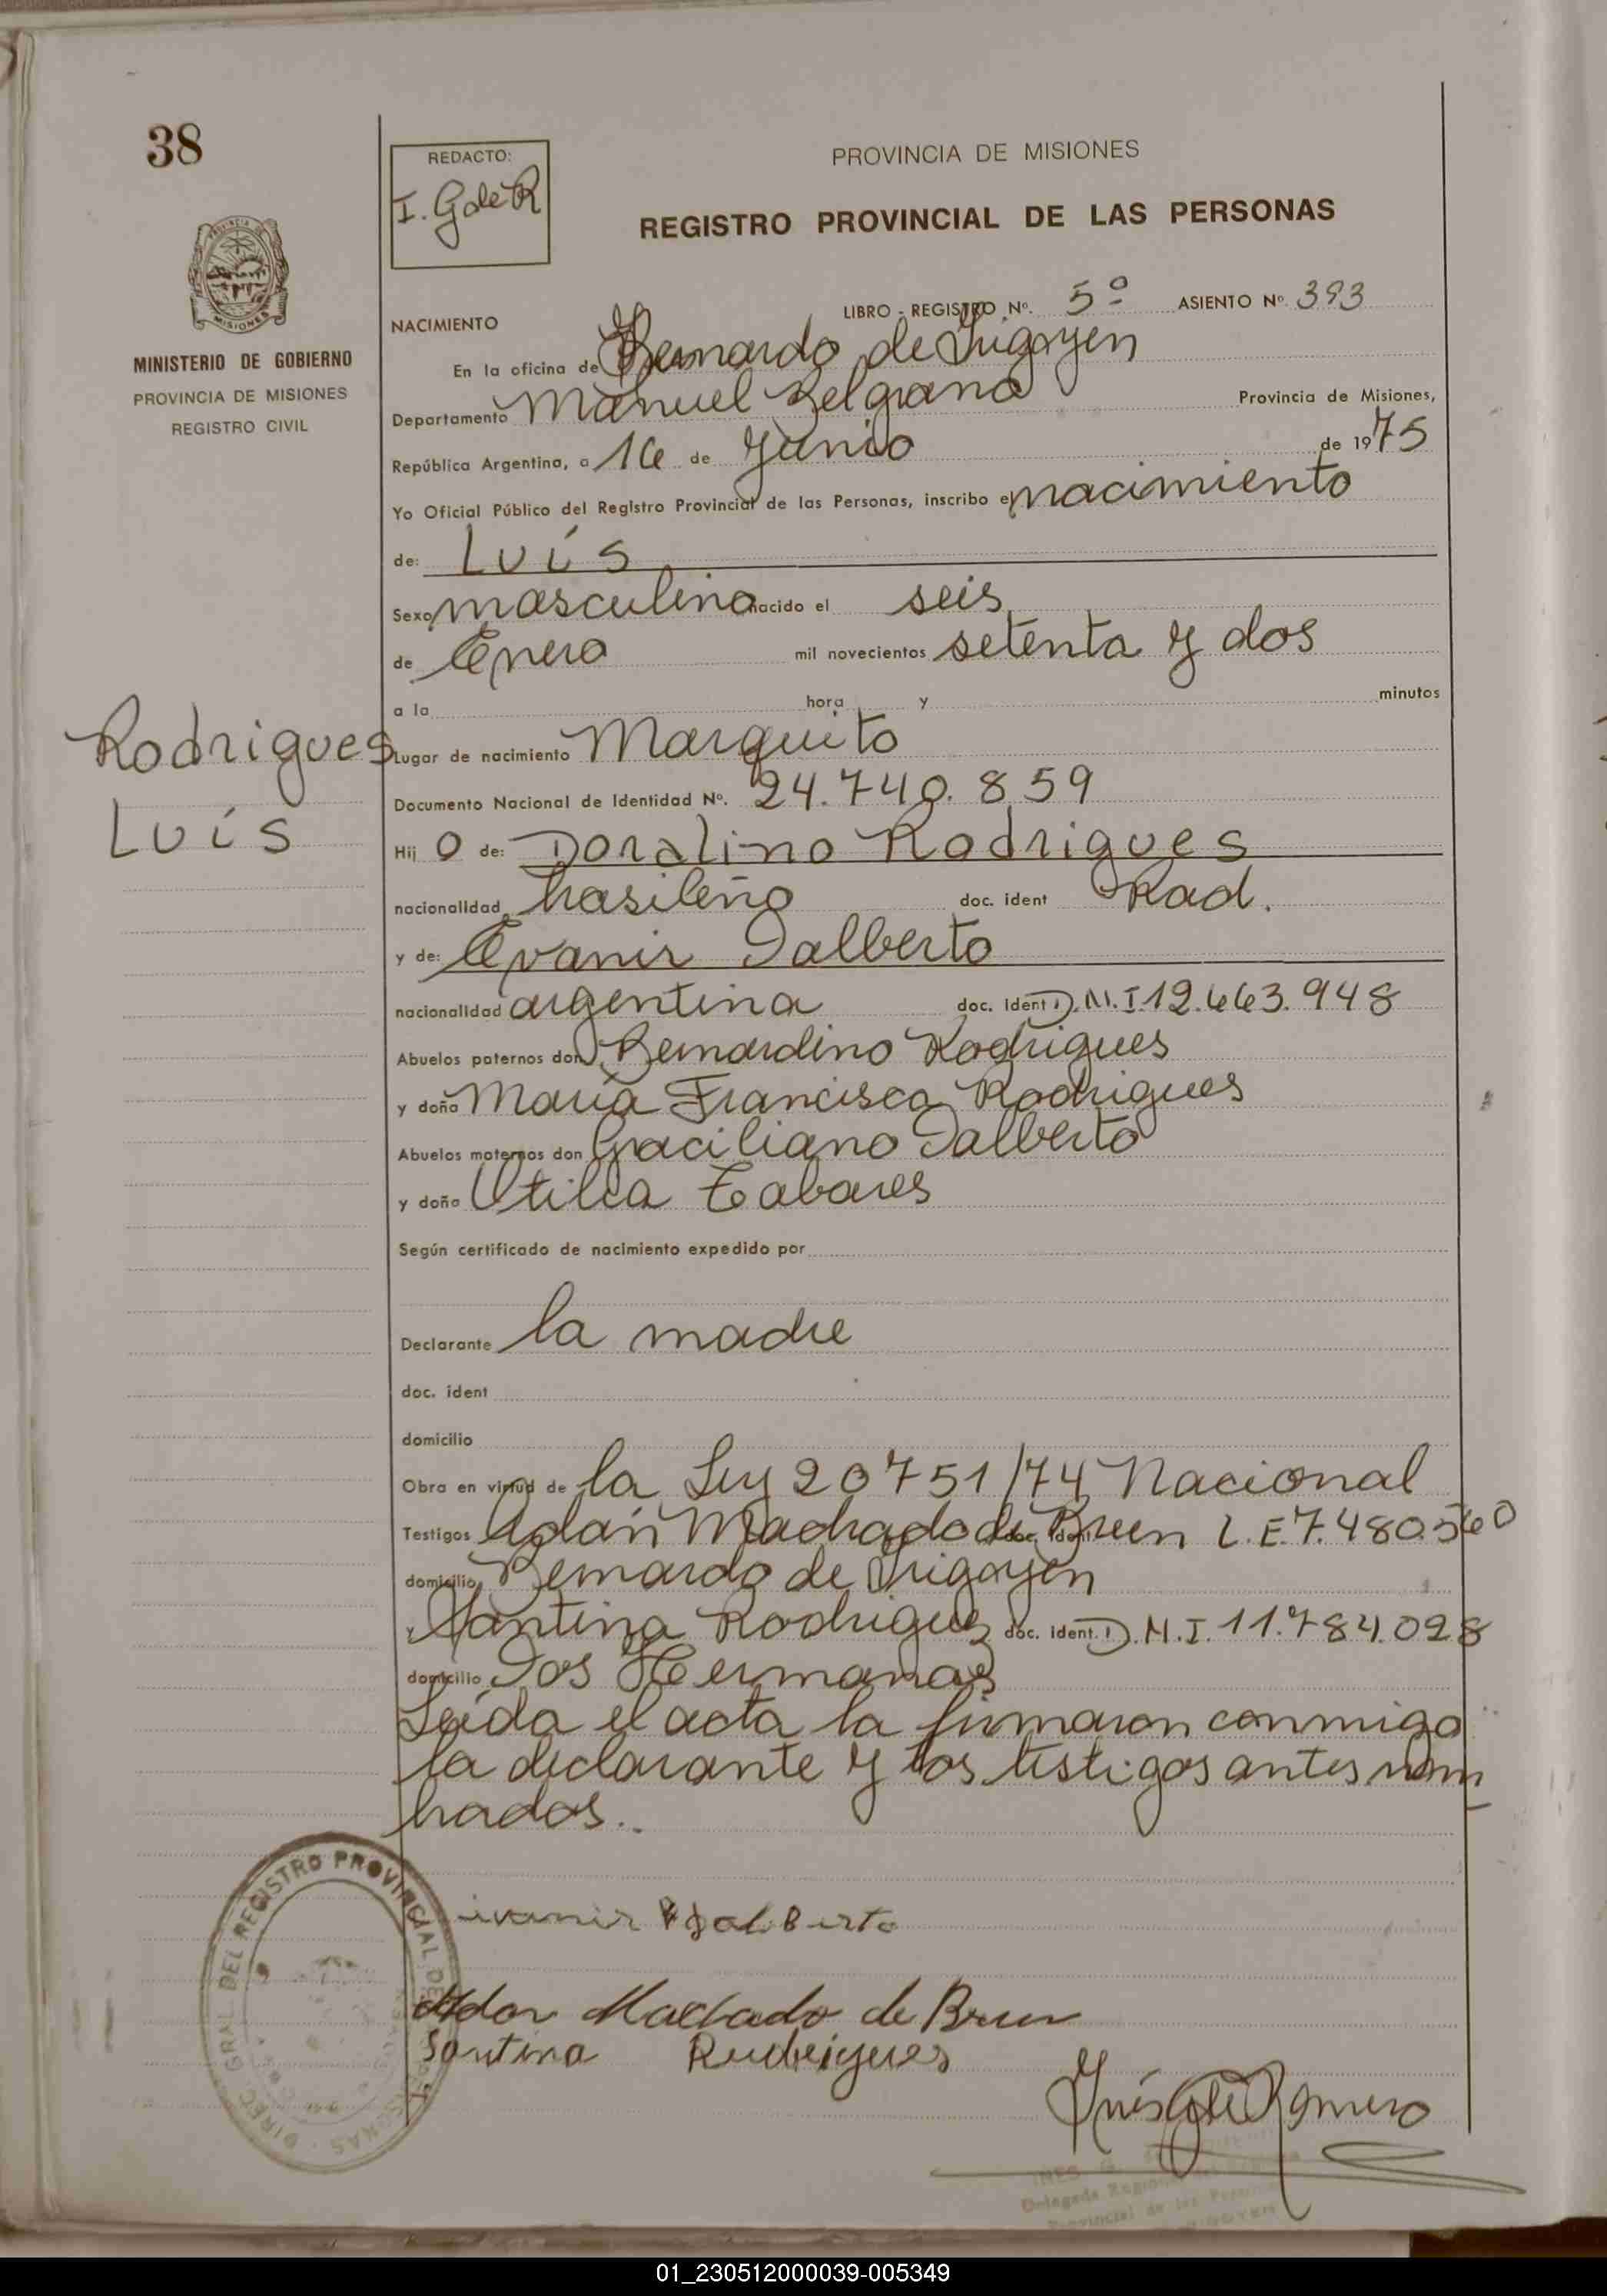 38
REDACTO:
I. Gale R
PROVINCIA DE MISIONES
REGISTRO PROVINCIAL DE LAS PERSONAS
MISIONES
MINISTERIO DE GOBIERNO
PROVINCIA DE MISIONES
REGISTRO CIVIL
LIBRO - REGISTRO Nº. 5º ASIENTO Nº. 393
NACIMIENTO
En la oficina de Bernardo de Irigoyen
Departamento Manuel Belgrano Provincia de Misiones,
República Argentina, a 16 de Junio de 1975
Yo Oficial Público del Registro Provincial de las Personas, inscribo el nacimiento
de: Luís
Sexo masculino nacido el seis
de Enero mil novecientos setenta y dos
a la hora y minutos
Rodrigues
Luís
Lugar de nacimiento Marquito
Documento Nacional de Identidad Nº. 24.740.859
Hij o de: Doralino Rodrigues
nacionalidad brasileño doc. ident Rad.
y de: Evanir Dalberto
nacionalidad argentina doc. ident D.N.I. 12.663.948
Abuelos paternos don Bernardino Rodrigues
y doña María Francisca Rodrigues
Abuelos maternos don Graciliano Dalberto
y doña Otilia Tabares
Según certificado de nacimiento expedido por
Declarante la madre
doc. ident
domicilio
Obra en virtud de la Ley 20751/74 Nacional
Testigos Adán Machado de Breen doc. ident L.E. 7.480.560
domicilio Bernardo de Irigoyen
y Santina Rodrigues doc. ident. D.N.I. 11.784.028
domicilio Dos Hermanas
Leída el acta la firmaron conmigo
la declarante y los testigos antes nom
brados..
DIREC. GRAL. DEL REGISTRO PROVINCIAL DE
ivanir Dalberto
Adan Machado de Brun
Santina Rudrigues
Inés Gale Romero
INES G.
Delegada
Provincial de las
01_230512000039-005349